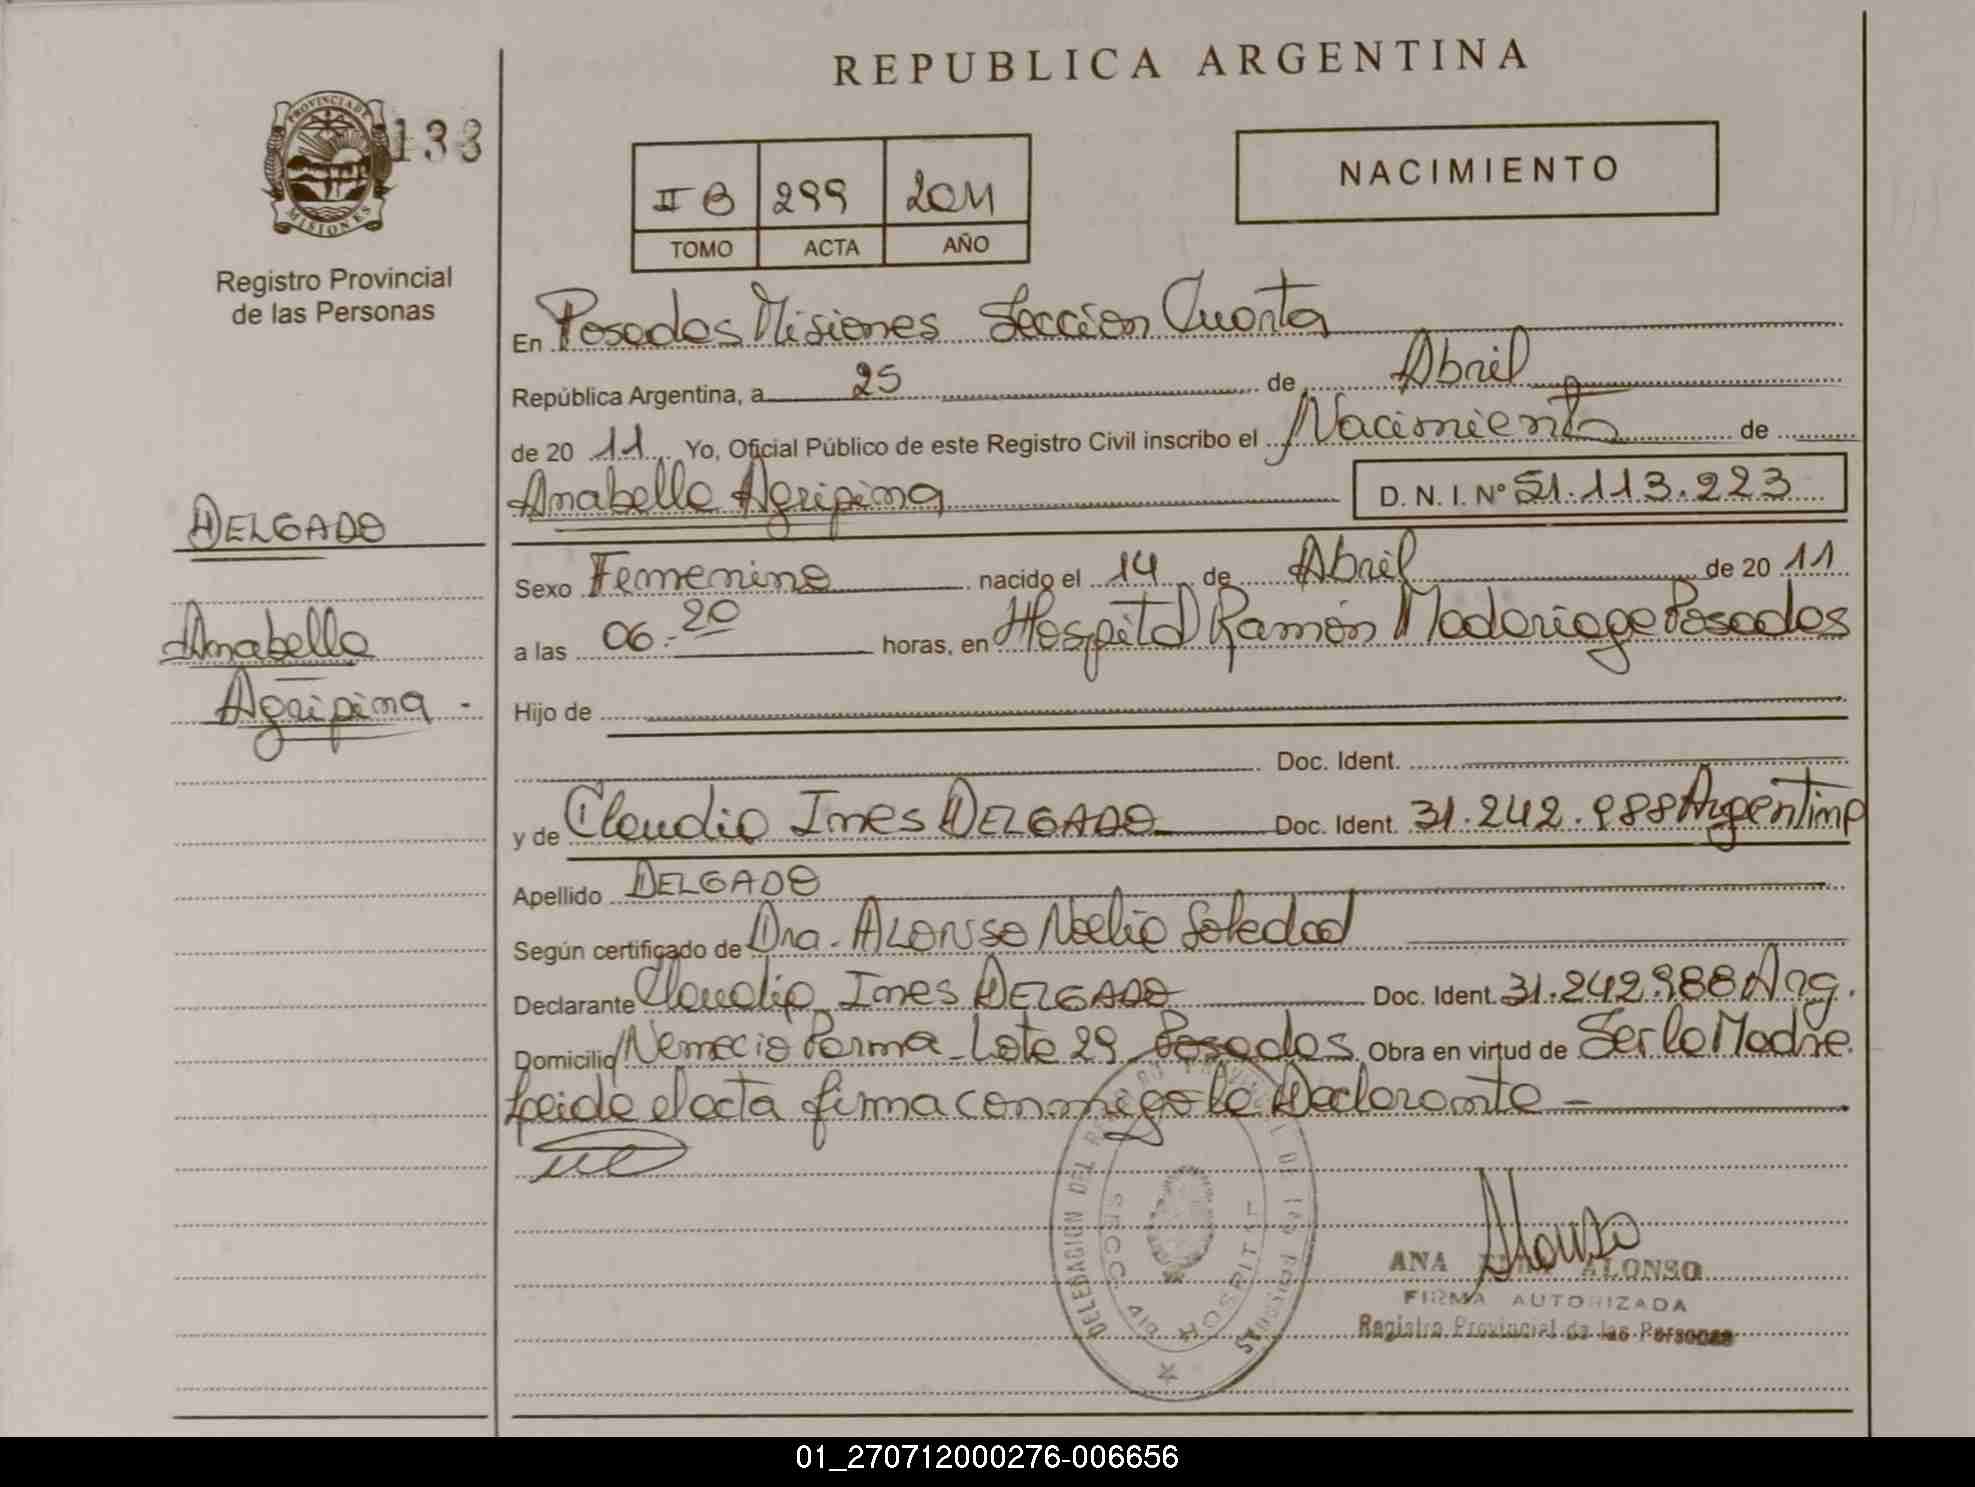 REPUBLICA ARGENTINA
PROVINCIA DE
MISIONES
133
Registro Provincial
de las Personas
II B 299 2011
TOMO ACTA AÑO
NACIMIENTO
En Posadas Misiones Sección Cuarta
República Argentina, a 25 de Abril
de 20 11 Yo, Oficial Público de este Registro Civil inscribo el Nacimiento de
Anabella Agripina D. N. I. Nº 51.113.223
DELGADO
Anabella
Agripina -
Sexo Femenino nacido el 14 de Abril de 20 11
a las 06-20 horas, en Hospital Ramón Madariaga Posadas
Hijo de
Doc. Ident.
y de Claudia Ines DELGADO Doc. Ident. 31.242.988 Argentina
Apellido DELGADO
Según certificado de Dra. ALONSO Noelia Soledad
Declarante Claudia Ines DELGADO Doc. Ident. 31.242.988 Arg.
Domicilio Nemecio Parma Lote 29 Posadas Obra en virtud de Ser la Madre
Leida el acta firma conmigo la Declarante -
DELEGACION DEL REGISTRO PROVINCIAL DE LAS PERSONAS
SECC. 4ta HOSPITAL
Alonso
ANA ALONSO
FIRMA AUTORIZADA
Registro Provincial de las Personas
01_270712000276-006656